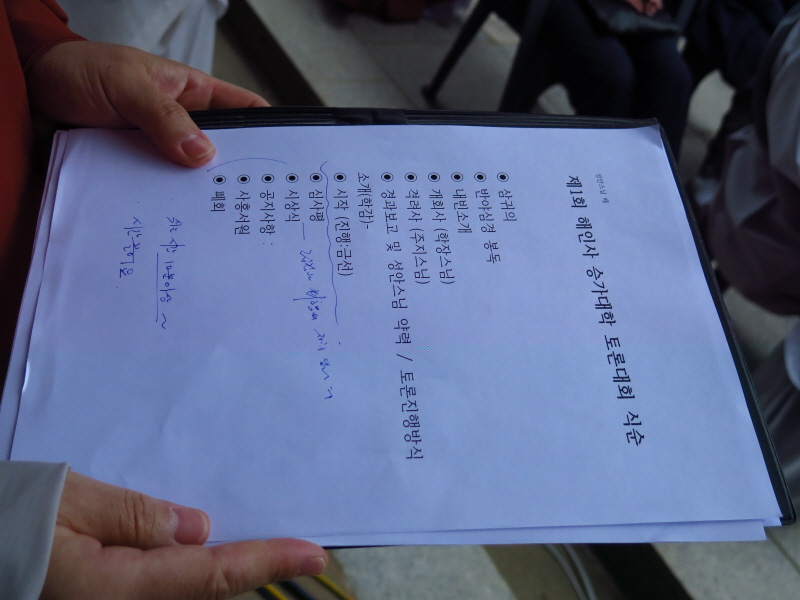 성안스님 배
제1회 해인사 승가대학 토론대회 식순
◉ 삼귀의
◉ 반야심경 봉독
◉ 내빈소개
◉ 개회사 (학장스님)
◉ 격려사 (주지스님)
◉ 경과보고 및 성안스님 약력 / 토론진행방식
소개(학감)-
◉ 시작 (진행:금선)
◉ 심사평
◉ 시상식
◉ 공지사항 :
◉ 사홍서원
◉ 폐회